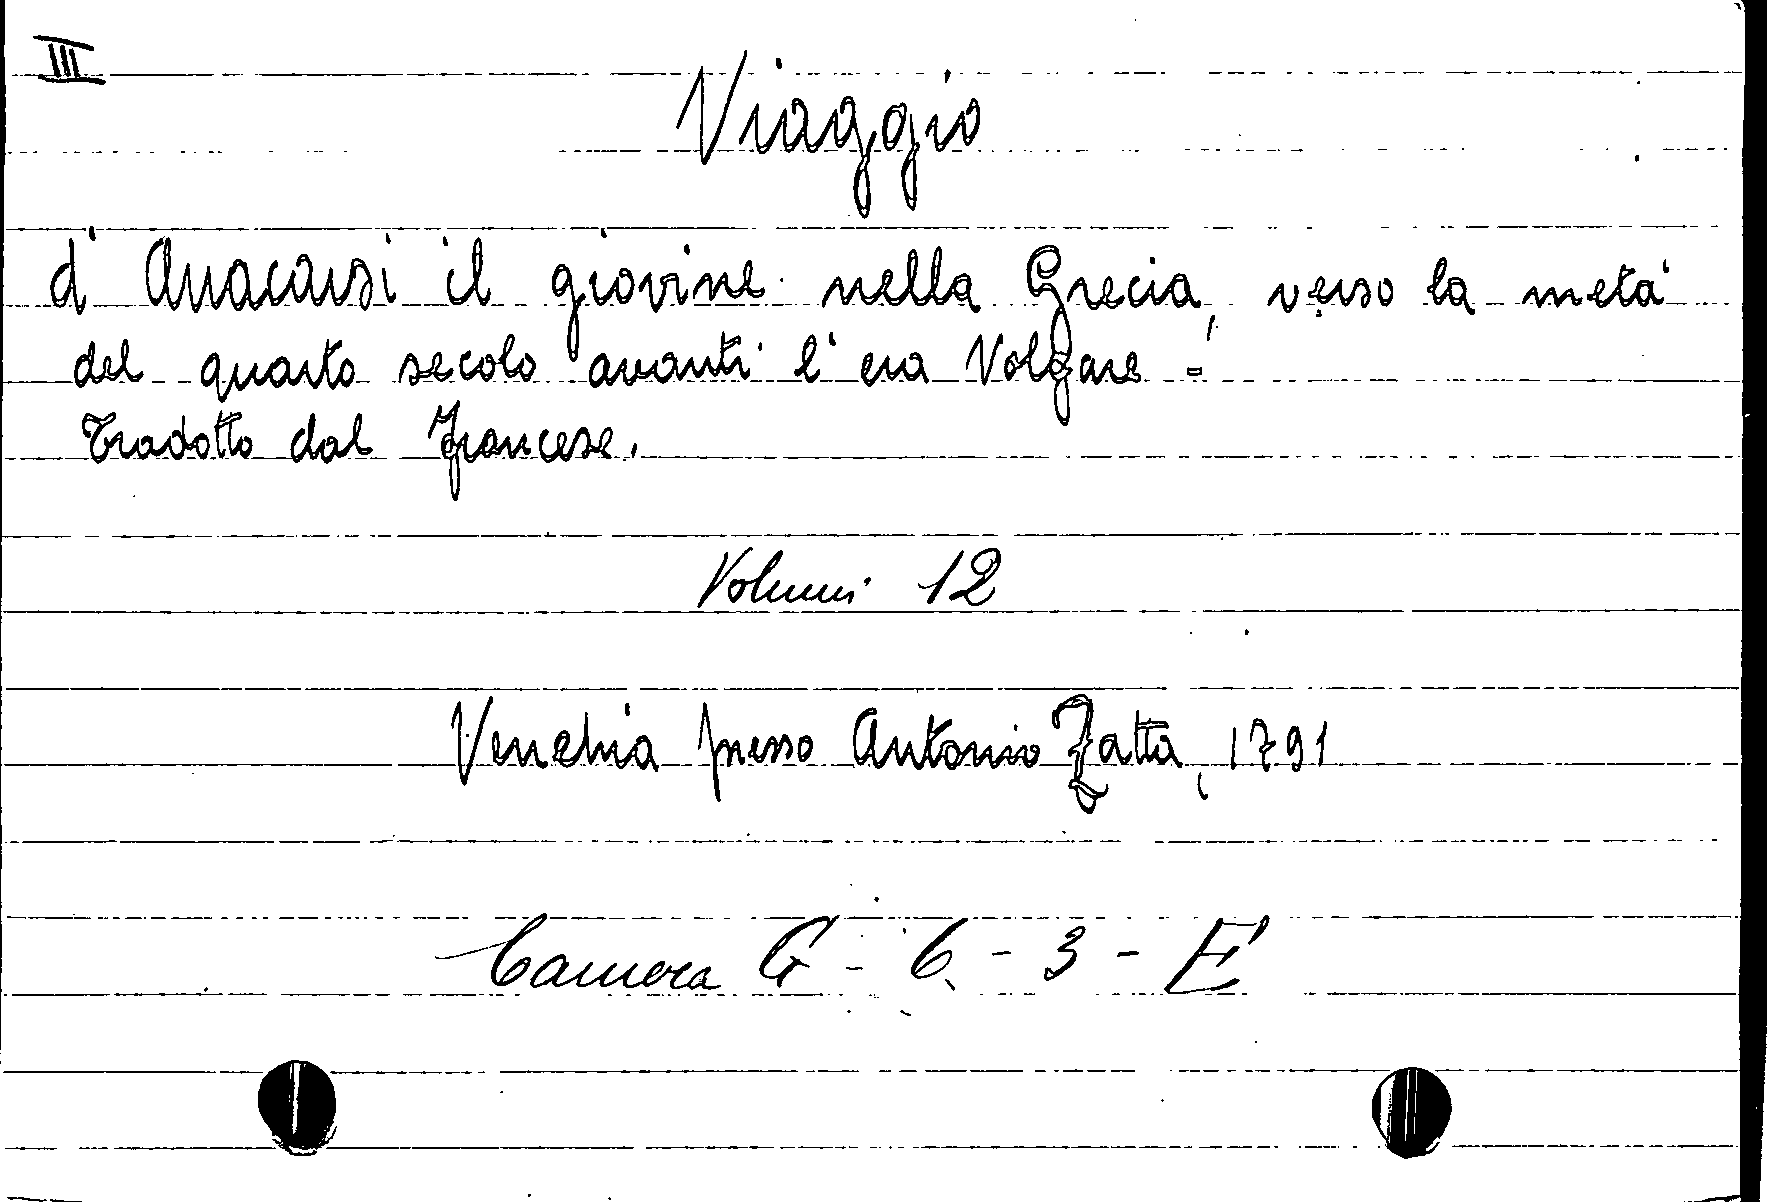 III
Viaggio
d'Anacarsi il giovine nella Grecia, verso la metà
del quarto secolo avanti l'era Volgare -
Tradotto dal francese.
Volumi 12
Venezia presso Antonio Zatta, 1791
Camera G - 6 - 3 - E